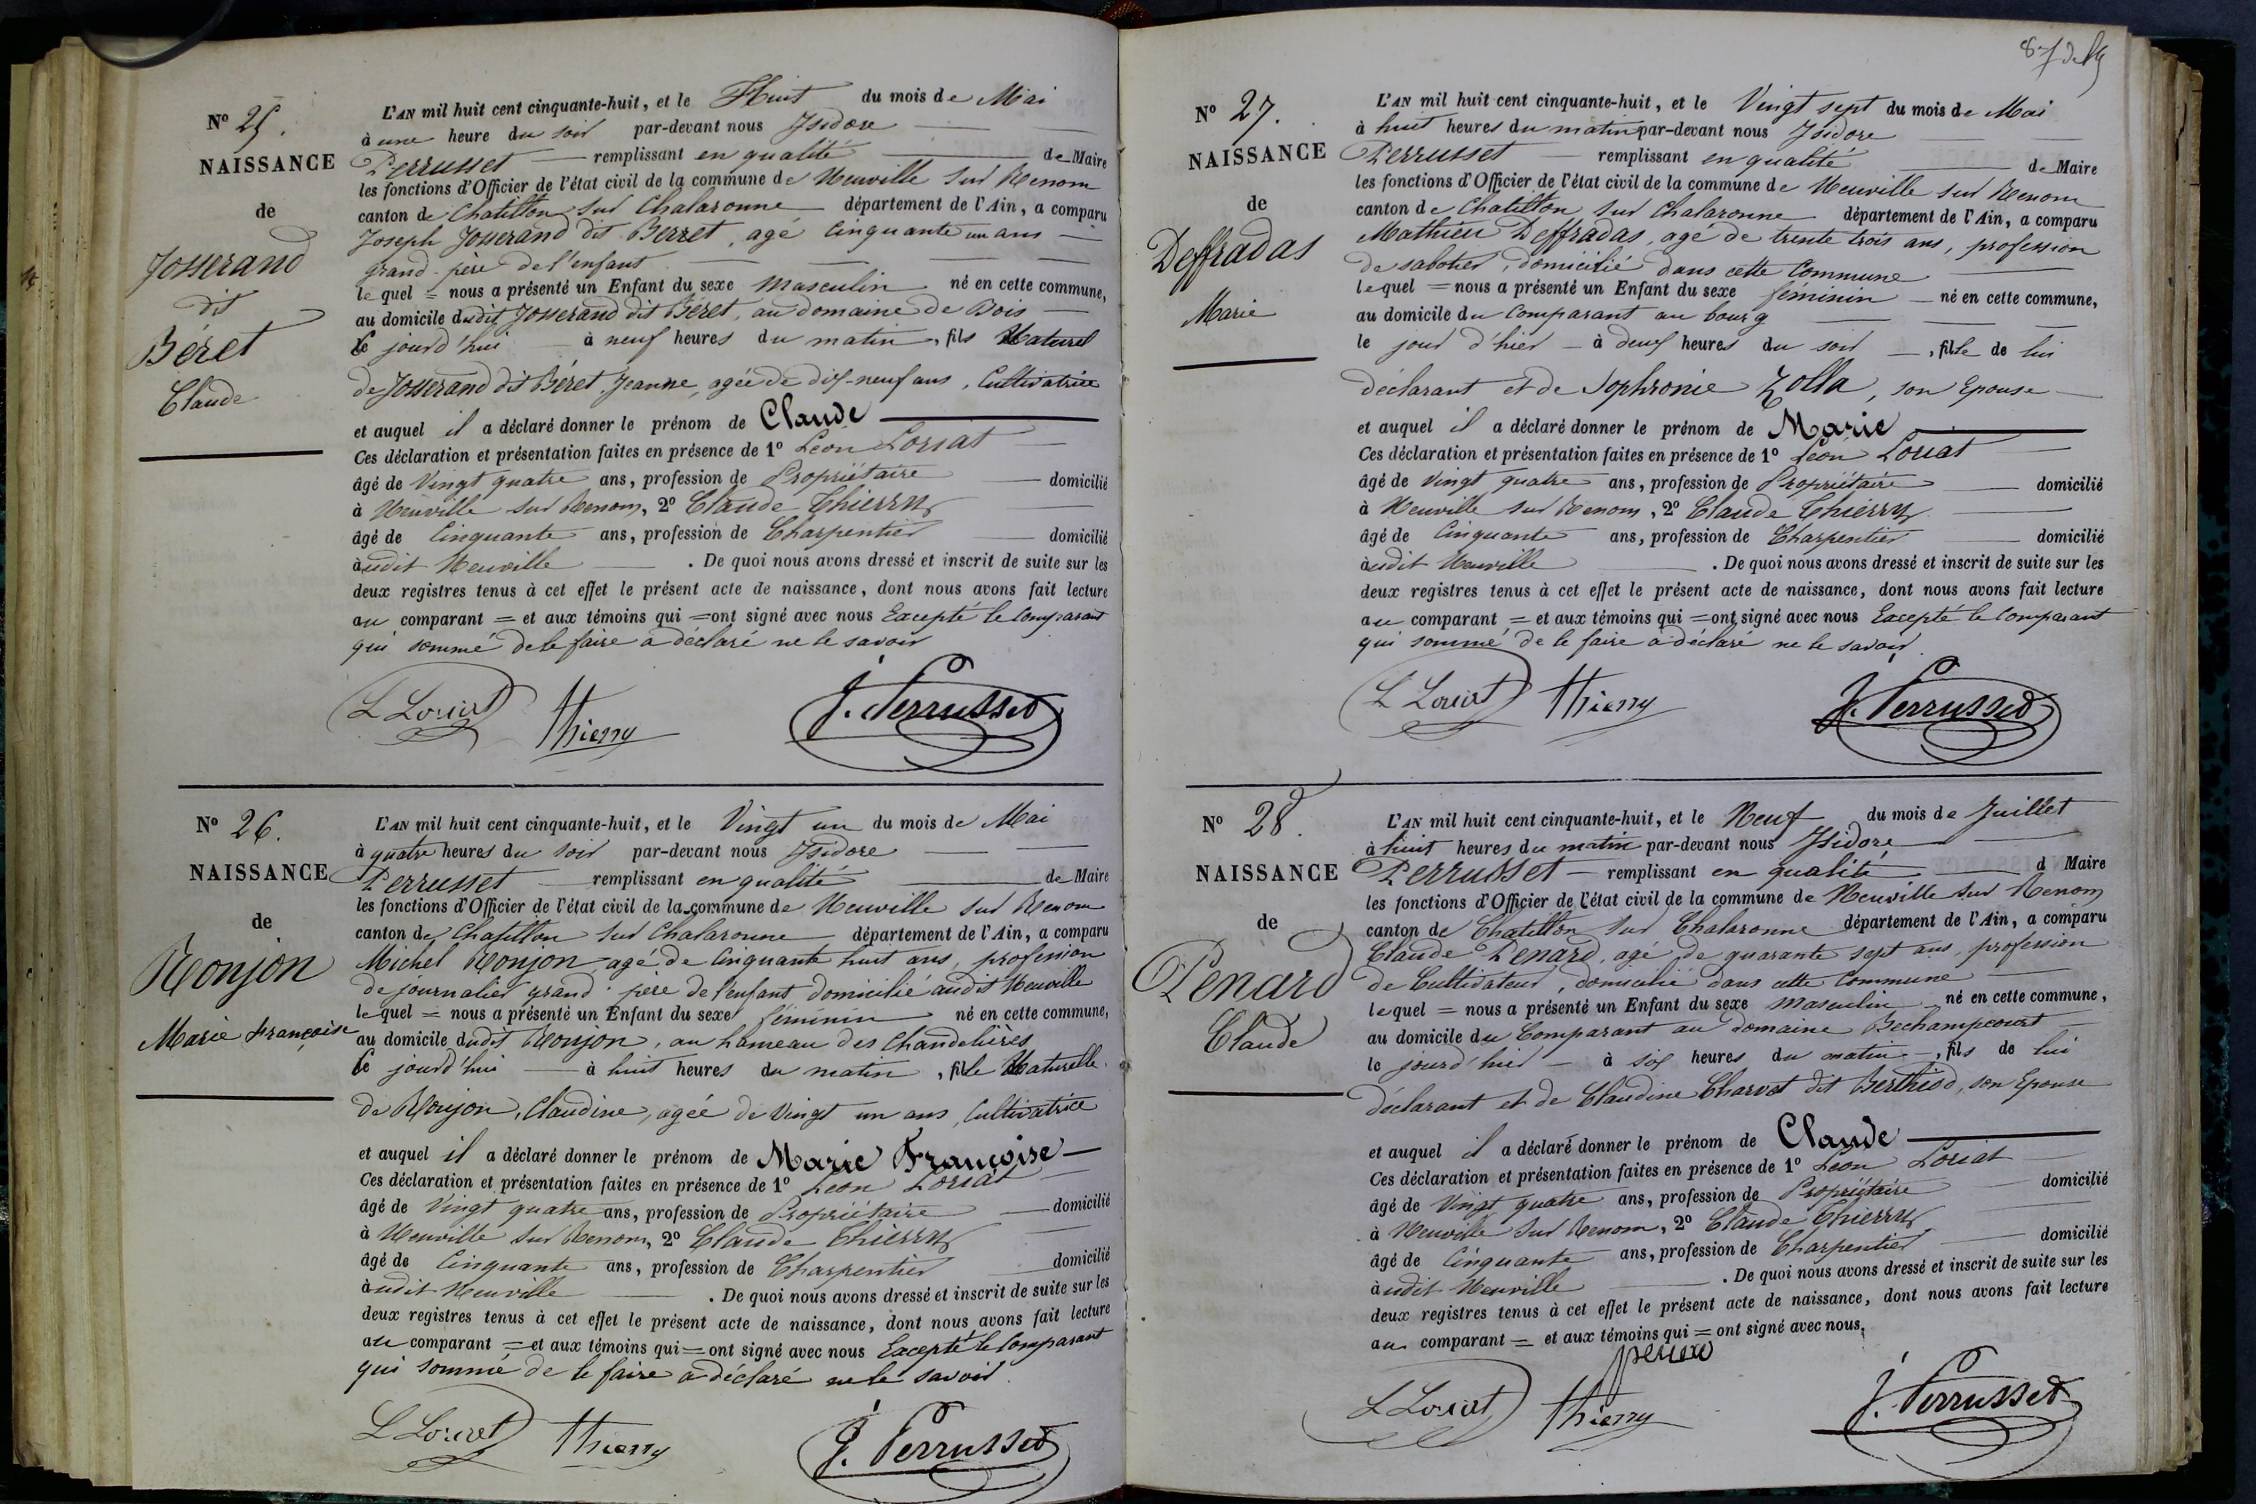 N° 25.
NAISSANCE
de
Josserand
dit
Béret
Claude
L'AN mil huit cent cinquante-huit, et le Huit du mois de Mai
à une heure du soir par-devant nous Isidore
Perrusset remplissant en qualité de Maire
les fonctions d'Officier de l'état civil de la commune de Neuville sur Renom
canton de Chatillon sur Chalaronne département de l'Ain, a comparu
Joseph Josserand dit Berret, agé Cinquante un ans
grand-père de l'enfant
lequel = nous a présenté un Enfant du sexe masculin né en cette commune,
au domicile dudit Josserand dit Béret, au domaine de Bois
le jourd'hui à neuf heures du matin, fils Naturel
de Josserand dit Béret Jeanne, agée de dix-neuf ans, Cultivatrice
et auquel il a déclaré donner le prénom de Claude
Ces déclaration et présentation faites en présence de 1° Léon Loriat
âgé de Vingt quatre ans, profession de Propriétaire domicilié
à Neuville sur Renom, 2° Claude Thierry
âgé de Cinquante ans, profession de Charpentier domicilié
àudit Neuville . De quoi nous avons dressé et inscrit de suite sur les
deux registres tenus à cet effet le présent acte de naissance, dont nous avons fait lecture
au comparant = et aux témoins qui = ont signé avec nous Excepté le Comparant
qui sommé de le faire a déclaré ne le savoir
L Loriat Thierry J. Perrusset
N° 26.
NAISSANCE
de
Ronjon
Marie Françoise
L'AN mil huit cent cinquante-huit, et le Vingt un du mois de Mai
à quatre heures du soir par-devant nous Isidore
Perrusset remplissant en qualité de Maire
les fonctions d'Officier de l'état civil de la commune de Neuville sur Renom
canton de Chatillon sur Chalaronne département de l'Ain, a comparu
Michel Ronjon agé de Cinquante huit ans, profession
de journalier grand-père de l'enfant domicilié audit Neuville
lequel = nous a présenté un Enfant du sexe féminin né en cette commune,
au domicile dudit Ronjon, au hameau des Chandelières
le jourd'hui à huit heures du matin, fille Naturelle
de Ronjon, Claudine, agée de Vingt un ans, Cultivatrice
et auquel il a déclaré donner le prénom de Marie Françoise
Ces déclaration et présentation faites en présence de 1° Léon Loriat
âgé de Vingt quatre ans, profession de Propriétaire domicilié
à Neuville sur Renom, 2° Claude Thierry
âgé de Cinquante ans, profession de Charpentier domicilié
àudit Neuville . De quoi nous avons dressé et inscrit de suite sur les
deux registres tenus à cet effet le présent acte de naissance, dont nous avons fait lecture
au comparant = et aux témoins qui = ont signé avec nous Excepté le Comparant
qui sommé de le faire a déclaré ne le savoir.
L Loriat Thierry J. Perrusset
N° 27.
NAISSANCE
de
Deffradas
Marie
L'AN mil huit cent cinquante-huit, et le Vingt sept du mois de Mai
à huit heures du matin par-devant nous Isidore
Perrusset remplissant en qualité de Maire
les fonctions d'Officier de l'état civil de la commune de Neuville sur Renom
canton de Chatillon sur Chalaronne département de l'Ain, a comparu
Mathieu Deffradas, agé de trente trois ans, profession
de sabotier, domicilié dans cette Commune
lequel = nous a présenté un Enfant du sexe féminin né en cette commune,
au domicile du Comparant au bourg
le jour d'hier à deux heures du soir, fille de lui
déclarant et de Sophronie Zolla, son Epouse
et auquel il a déclaré donner le prénom de Marie
Ces déclaration et présentation faites en présence de 1° Léon Loriat
âgé de Vingt quatre ans, profession de Propriétaire domicilié
à Neuville sur Renom, 2° Claude Thierry
âgé de Cinquante ans, profession de Charpentier domicilié
àudit Neuville . De quoi nous avons dressé et inscrit de suite sur les
deux registres tenus à cet effet le présent acte de naissance, dont nous avons fait lecture
au comparant = et aux témoins qui = ont signé avec nous Excepté le Comparant
qui sommé de le faire a déclaré ne le savoir.
L Loriat Thierry J. Perrusset
N° 28.
NAISSANCE
de
Penard
Claude
L'AN mil huit cent cinquante-huit, et le Neuf du mois de Juillet
à huit heures du matin par-devant nous Isidore
Perrusset remplissant en qualité d Maire
les fonctions d'Officier de l'état civil de la commune de Neuville sur Renom
canton de Chatillon sur Chalaronne département de l'Ain, a comparu
Claude Penard, agé de quarante sept ans, profession
de Cultivateur, domicilié dans cette Commune
lequel = nous a présenté un Enfant du sexe masculin né en cette commune,
au domicile du Comparant au domaine Bechampcourt
le jourd'hier à six heures du matin, fils de lui
déclarant et de Claudine Charvet dit Berthiod, son Epouse
et auquel il a déclaré donner le prénom de Claude
Ces déclaration et présentation faites en présence de 1° Léon Loriat
âgé de Vingt quatre ans, profession de Propriétaire domicilié
à Neuville sur Renom, 2° Claude Thierry
âgé de Cinquante ans, profession de Charpentier domicilié
àudit Neuville . De quoi nous avons dressé et inscrit de suite sur les
deux registres tenus à cet effet le présent acte de naissance, dont nous avons fait lecture
au comparant = et aux témoins qui = ont signé avec nous.
L Loriat Thierry J. Perrusset